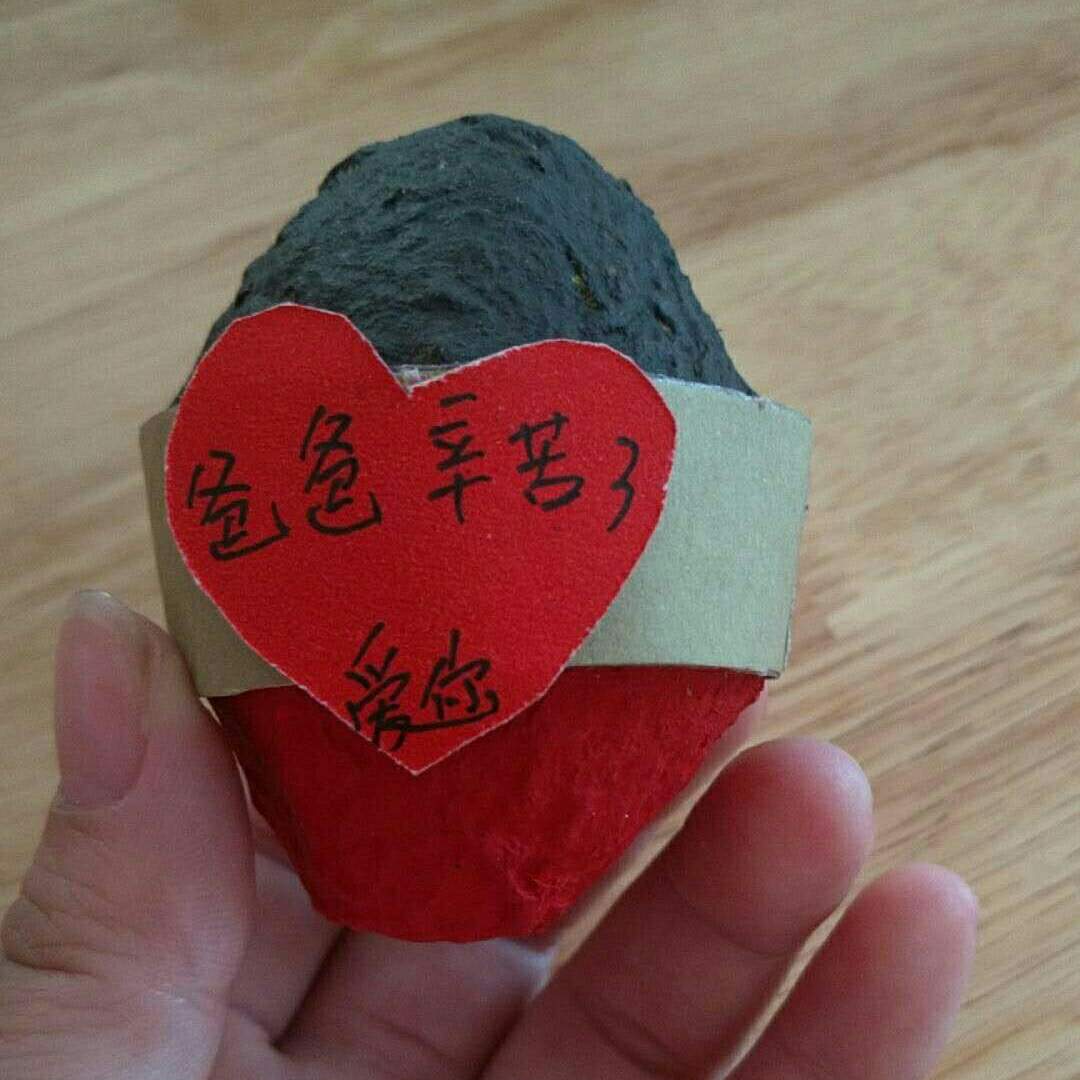 爸爸辛苦了
爱你